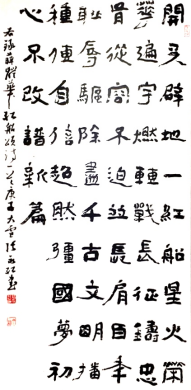 開天辟地一紅船星火
遍宇燃戰長征鑄忠
骨從容不迫長肩百年
恥辱驅除盡千古文明播
種自信超然疆國夢初
心不改譜新篇
右錄薛耀華紅船頌詩一首庚子大雪書